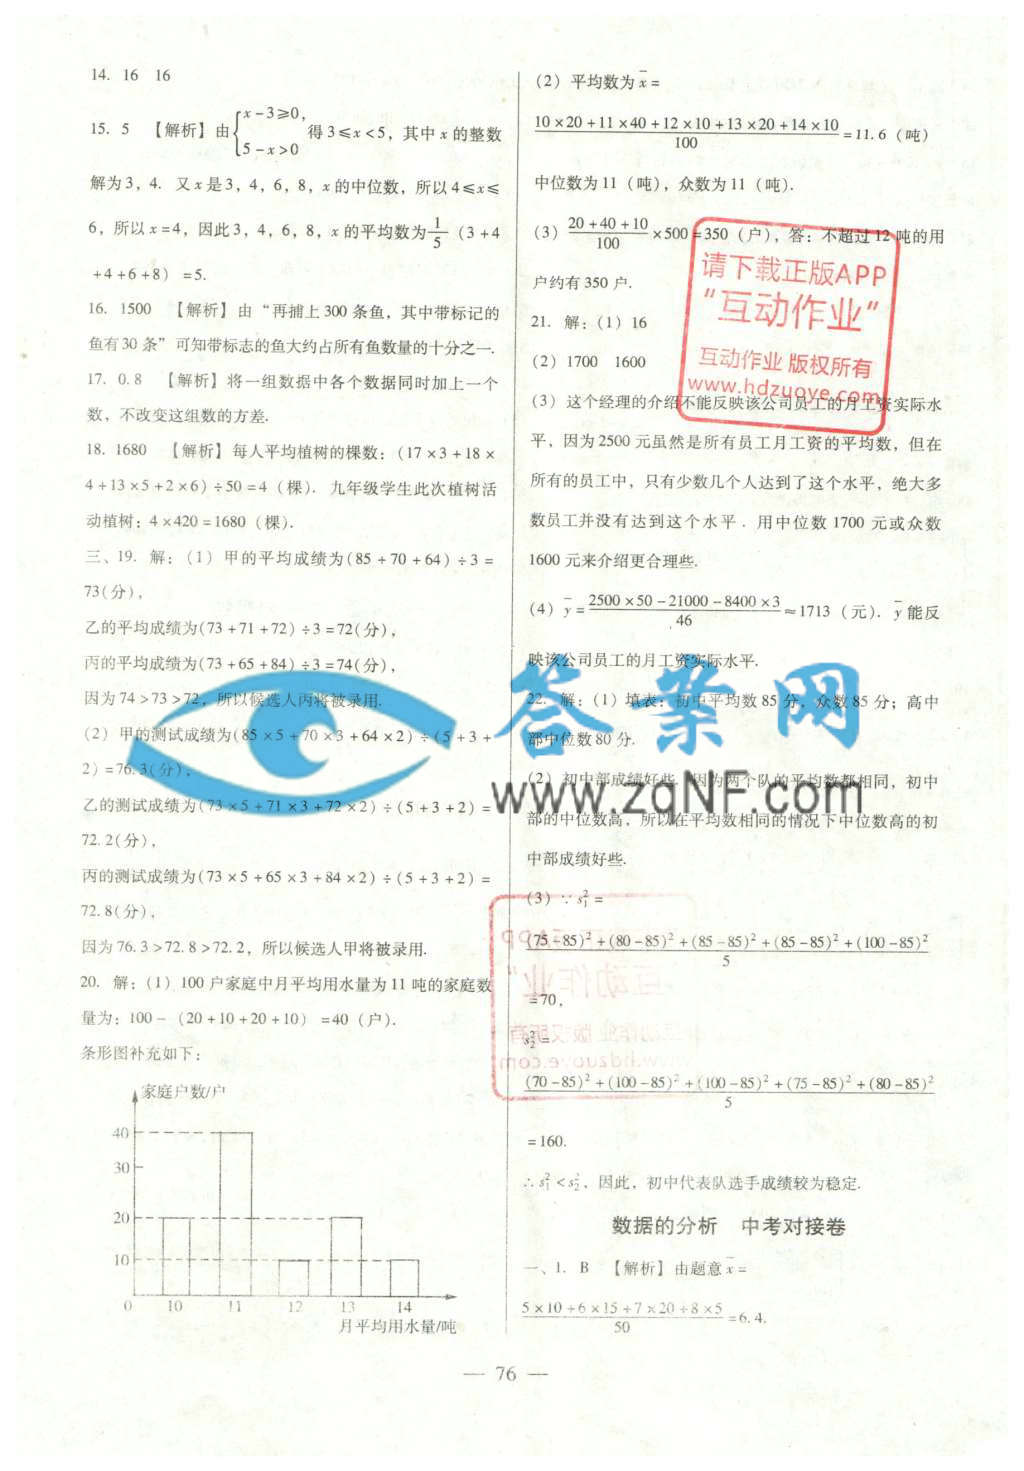 14. 16 16
15. 5 【解析】由{x-3≥0, 5-x>0 得3≤x<5，其中x的整数
解为3，4. 又x是3，4，6，8，x的中位数，所以4≤x≤
6，所以x=4，因此3，4，6，8，x的平均数为1/5（3+4
+4+6+8）=5.
16. 1500 【解析】由“再捕上300条鱼，其中带标记的
鱼有30条”可知带标志的鱼大约占所有鱼数量的十分之一.
17. 0.8 【解析】将一组数据中各个数据同时加上一个
数，不改变这组数的方差.
18. 1680 【解析】每人平均植树的棵数：(17×3+18×
4+13×5+2×6)÷50=4（棵）. 九年级学生此次植树活
动植树：4×420=1680（棵）.
三、19. 解：（1）甲的平均成绩为(85+70+64)÷3=
73(分)，
乙的平均成绩为(73+71+72)÷3=72(分)，
丙的平均成绩为(73+65+84)÷3=74(分)，
因为74>73>72，所以候选人丙将被录用.
（2）甲的测试成绩为(85×5+70×3+64×2)÷(5+3+
2)=76.3(分)，
乙的测试成绩为(73×5+71×3+72×2)÷(5+3+2)=
72.2(分)，
丙的测试成绩为(73×5+65×3+84×2)÷(5+3+2)=
72.8(分)，
因为76.3>72.8>72.2，所以候选人甲将被录用.
20. 解：（1）100户家庭中月平均用水量为11吨的家庭数
量为：100-（20+10+20+10）=40（户）.
条形图补充如下：
家庭户数/户
40
30
20
10
0 10 11 12 13 14
月平均用水量/吨
（2）平均数为x̄=
(10×20+11×40+12×10+13×20+14×10)/100=11.6（吨）
中位数为11（吨），众数为11（吨）.
（3）(20+40+10)/100×500=350（户），答：不超过12吨的用
户约有350户.
21. 解：（1）16
（2）1700 1600
（3）这个经理的介绍不能反映该公司员工的月工资实际水
平，因为2500元虽然是所有员工月工资的平均数，但在
所有的员工中，只有少数几个人达到了这个水平，绝大多
数员工并没有达到这个水平．用中位数1700元或众数
1600元来介绍更合理些.
（4）ȳ=(2500×50-21000-8400×3)/46≈1713（元）. ȳ能反
映该公司员工的月工资实际水平.
22. 解：（1）填表：初中平均数85分，众数85分；高中
部中位数80分.
（2）初中部成绩好些.因为两个队的平均数都相同，初中
部的中位数高，所以在平均数相同的情况下中位数高的初
中部成绩好些.
（3）∵s₁²=
((75-85)²+(80-85)²+(85-85)²+(85-85)²+(100-85)²)/5
=70，
s₂²=
((70-85)²+(100-85)²+(100-85)²+(75-85)²+(80-85)²)/5
=160.
∴s₁²<s₂²，因此，初中代表队选手成绩较为稳定.
数据的分析 中考对接卷
一、1. B 【解析】由题意x̄=
(5×10+6×15+7×20+8×5)/50=6.4.
— 76 —
请下载正版APP
“互动作业”
互动作业 版权所有
www.hdzuoye.com
答案网
www.zqNF.com